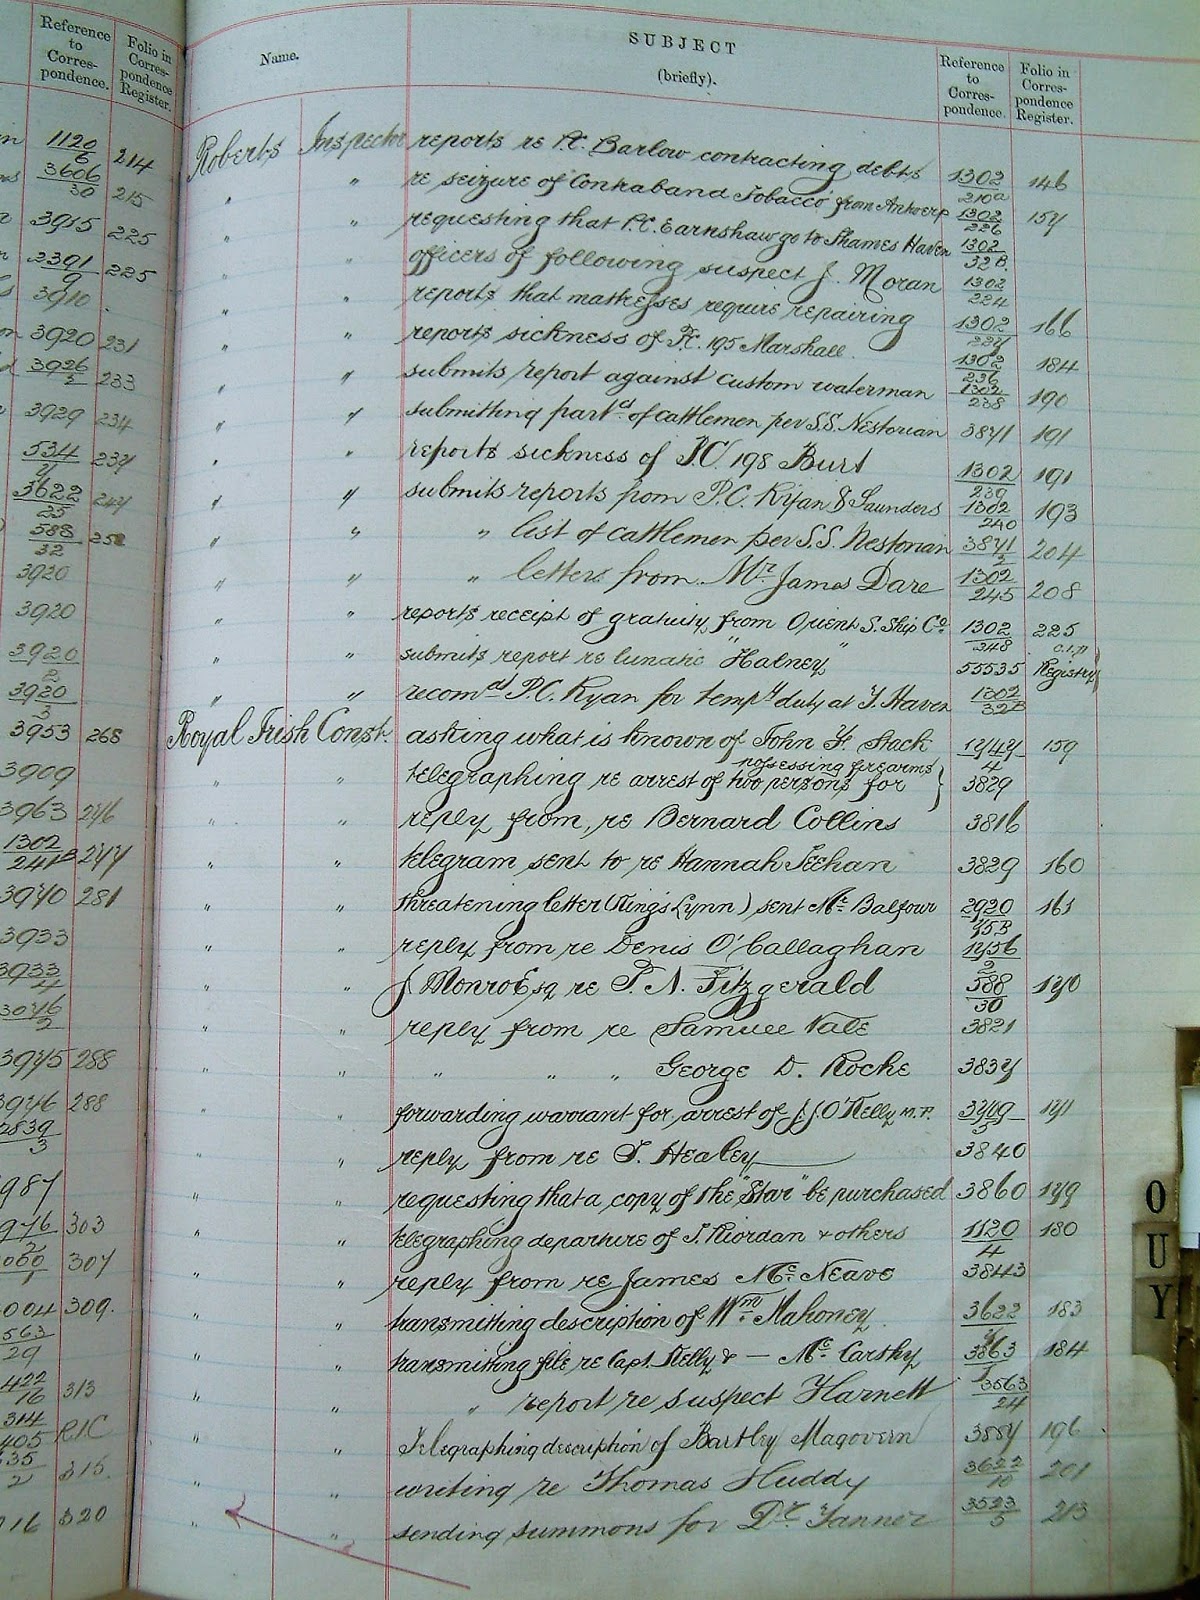 Reference to Correspondence. Folio in Correspondence Register.
1120/6 214
3606/30 215
3915 225
2391/9 225
3910
3920 231
3926/3 233
3929 234
534/7 237
3622/25 247
588/32
3920
3920
3920/2
3920/3
3953 268
3909
3963 276
1302/241B 277
3970 281
3933
3933/4
3076/2
3975 288
3976 288
2839/3
987
976/2 303
307
004 309.
563/29
422/16 313
314/405 RIC
35/2 315.
16 320
Name. SUBJECT (briefly). Reference to Correspondence. Folio in Correspondence Register.
Roberts Inspector reports re P.C. Barlow contracting debts 1302/210a 146
" " re seizure of Contraband Tobacco from Antwerp 1302/226 157
" " requesting that P.C. Earnshaw go to Thames Haven 1302/32B.
" " officers of following suspect J. Moran 1302/224
" " reports that mattresses require repairing 1302/227 166
" " reports sickness of P.C. 195 Marshall. 1302/236 184
" " submits report against custom waterman 1302/238 190
" " submitting partd of cattlemen per S.S. Nestorian 3871 191
" " reports sickness of P.C. 198 Burt 1302/239 191
" " submits reports from P.C. Ryan & Saunders 1302/240 193
" " " list of cattlemen per S.S. Nestorian 3871/2 204
" " " letters from Mr. James Dare 1302/245 208
" " reports receipt of gratuity from Orient S. Ship Co. 1302/248 225
" " submits report re lunatic "Halney" 55535 C.I.D Registry
" " recomd P.C. Ryan for tempy duty at T. Haven 1302/32B
Royal Irish Const. asking what is known of John F. Stack 1747/4 159
" " telegraphing re arrest of two persons for possessing firearms } 3829
" " reply from, re Bernard Collins 3816
" " telegram sent to re Hannah Feehan 3829 160
" " threatening letter (Kings Lynn) sent Mr. Balfour 2920/75B 161
" " reply from re Denis O'Callaghan 1756/2
" " J Monro Esq re P. N. Fitzgerald 588/30 170
" " reply from re Samuel Vale 3821
" " " " " George D. Roche 3837
" " forwarding warrant for arrest of J. J. O'Kelly M.P. 3719/5 171
" " reply from re T. Healey 3840
" " requesting that a copy of the "Star" be purchased 3860 179
" " telegraphing departure of J. Riordan & others 1120/4 180
" " reply from re James Mc. Neave 3843
" " transmitting description of Wm. Mahoney. 3622/7 183
" " transmitting file re Capt. Kelly & — Mc. Carthy 3863/1 184
" " " report re suspect Harnett 3563/24
" " Telegraphing description of Bartley Magovern 3887 196
" " writing re Thomas Huddy 3622/10 201
" " sending summons for Dr. Tanner 3523/5 213
O
U
Y